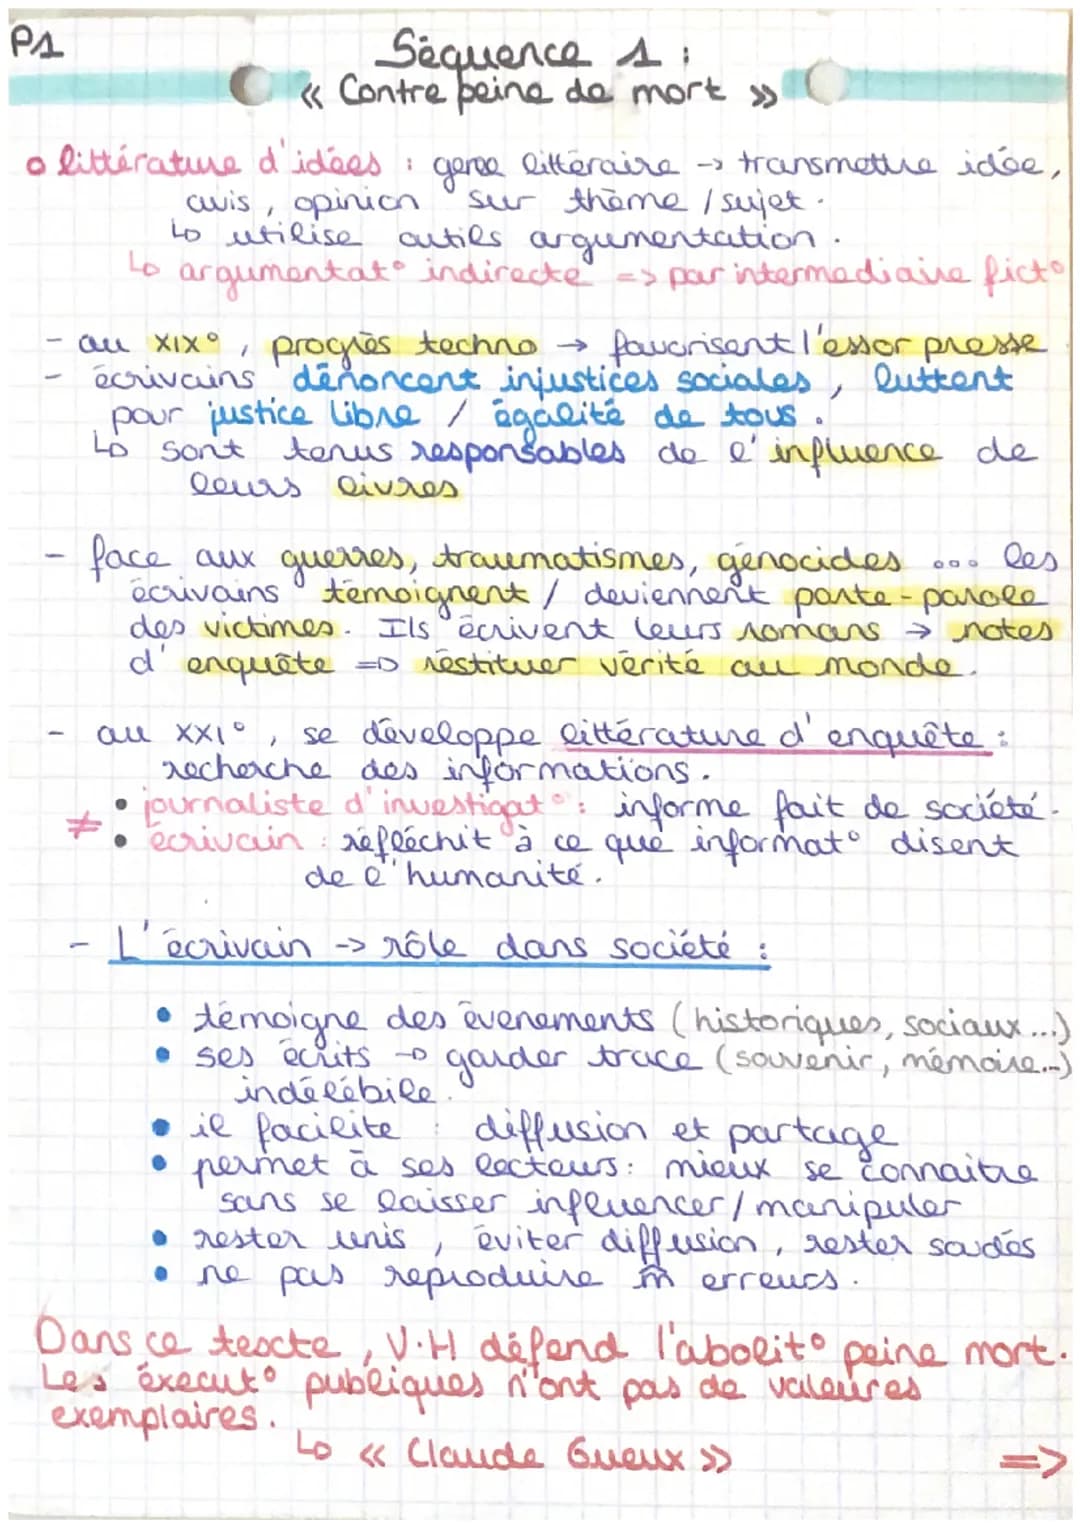 P1
Séquence 1 :
« Contre peine de mort »
littérature d'idées : genre littéraire -> transmettre idée,
avis, opinion sur thème / sujet.
↳ utilise outils argumentation.
↳ argumentat° indirecte => par intermediaire fict°
- au XIX°, progrès techno → favorisent l'essor presse
- écrivains dénoncent injustices sociales, luttent
pour justice libre / égalité de tous.
↳ sont tenus responsables de l'influence de
leurs livres
- face aux guerres, traumatismes, génocides ... les
écrivains témoignent / deviennent porte-parole
des victimes. Ils écrivent leurs romans → notes
d'enquête => réstituer vérité au monde.
- au XXI°, se développe littérature d'enquête :
recherche des informations.
≠ • journaliste d'investigat° : informe fait de société.
• écrivain : réfléchit à ce que informat° disent
de l'humanité.
- L'écrivain -> rôle dans société :
• témoigne des évenements (historiques, sociaux...)
• ses écrits → garder trace (souvenir, mémoire...)
indélébile.
• il facilite : diffusion et partage
• permet à ses lecteurs : mieux se connaitre
sans se laisser influencer / manipuler
• rester unis, éviter diffusion, rester soudés
• ne pas reproduire m̂ erreurs.
Dans ce texte, V.H défend l'abolit° peine mort.
Les éxecut° publiques n'ont pas de valeures
exemplaires.
↳ « Claude Gueux »
=>